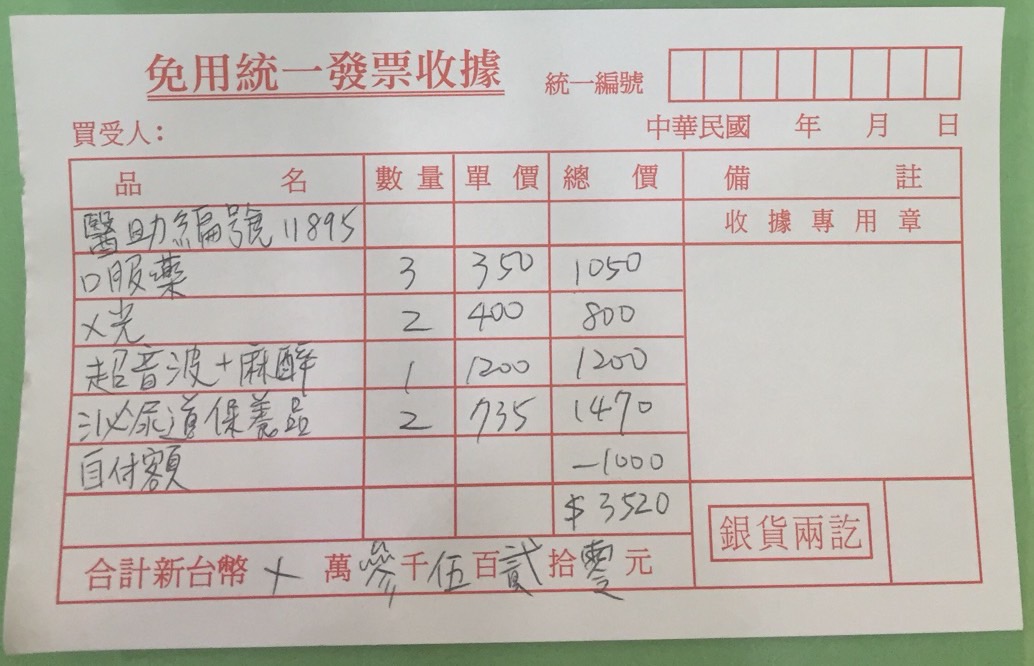 免用統一發票收據 統一編號
買受人： 中華民國 年 月 日
品名 數量 單價 總價 備註
醫助編號11895 收據專用章
口服藥 3 350 1050
X光 2 400 800
超音波+麻醉 1 1200 1200
泌尿道保養品 2 735 1470
自付額 -1000
$3520
合計新台幣 X 萬參千伍百貳拾零元 銀貨兩訖